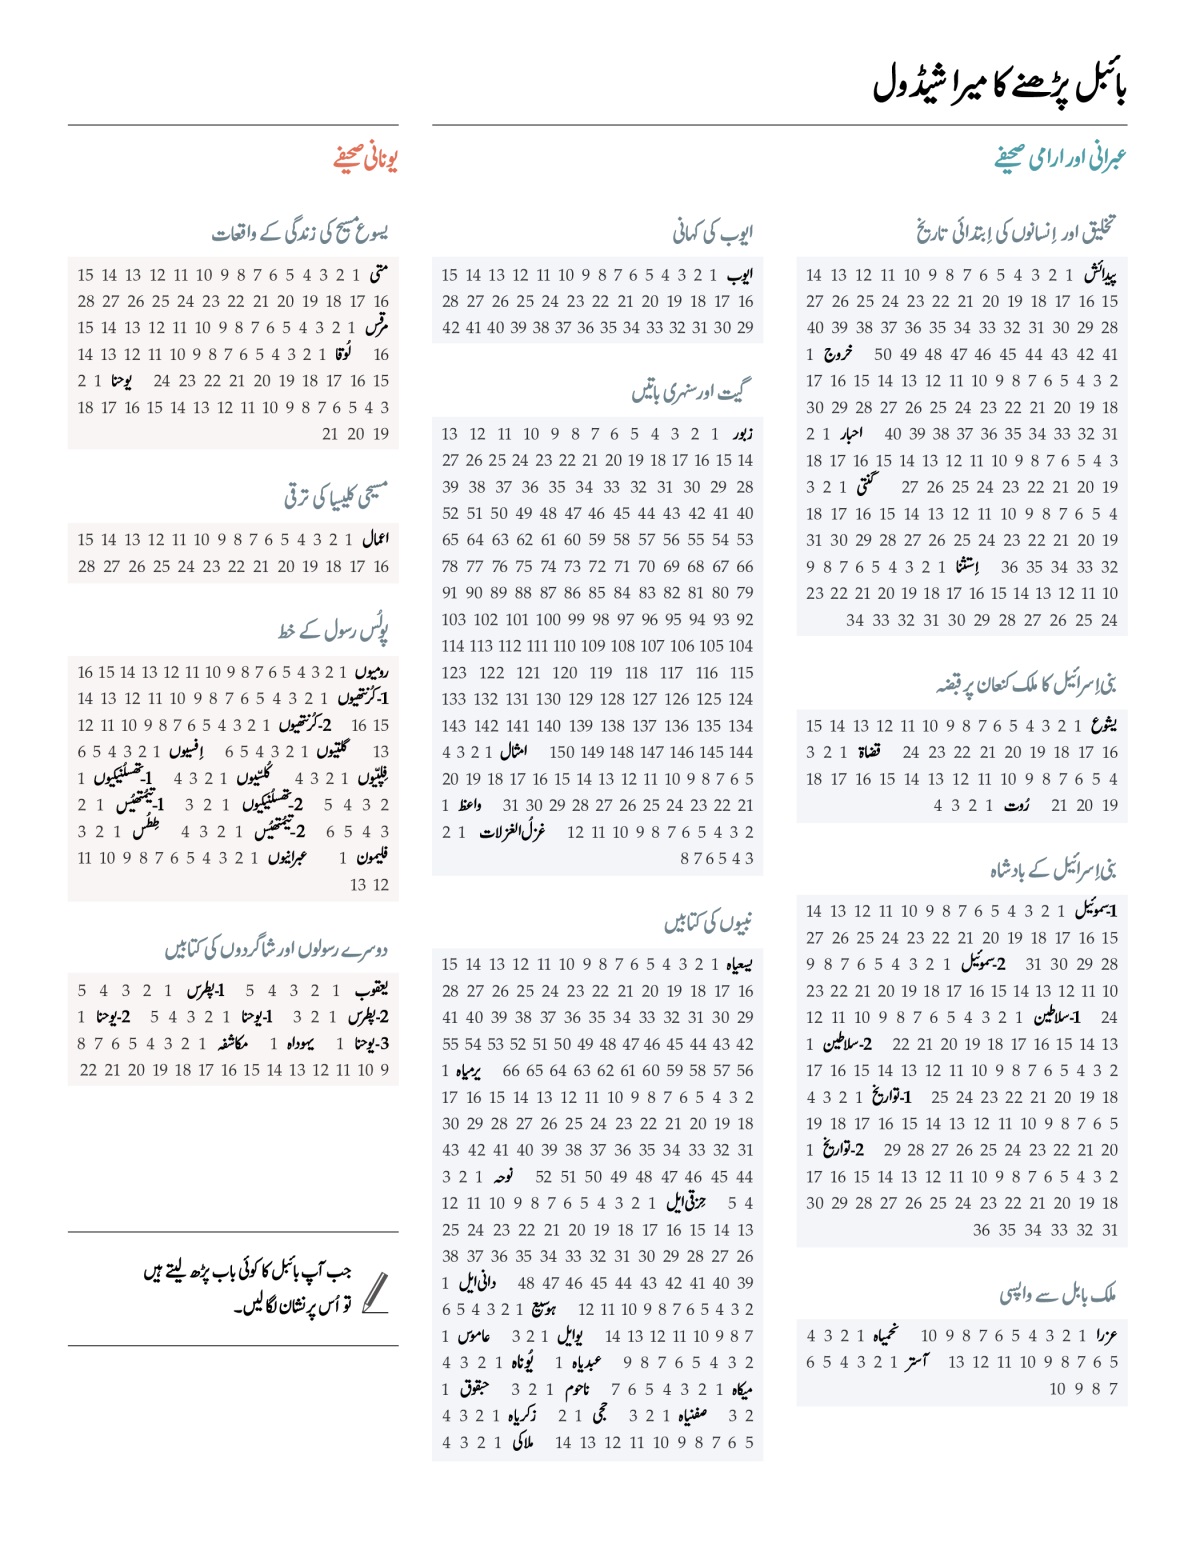 بائبل پڑھنے کا میرا شیڈول
عبرانی اور ارامی صحیفے
تخلیق اور اِنسانوں کی اِبتدائی تاریخ
پیدائش 1 2 3 4 5 6 7 8 9 10 11 12 13 14
15 16 17 18 19 20 21 22 23 24 25 26 27
28 29 30 31 32 33 34 35 36 37 38 39 40
41 42 43 44 45 46 47 48 49 50 خروج 1
2 3 4 5 6 7 8 9 10 11 12 13 14 15 16 17
18 19 20 21 22 23 24 25 26 27 28 29 30
31 32 33 34 35 36 37 38 39 40 احبار 1 2
3 4 5 6 7 8 9 10 11 12 13 14 15 16 17 18
19 20 21 22 23 24 25 26 27 گنتی 1 2 3
4 5 6 7 8 9 10 11 12 13 14 15 16 17 18
19 20 21 22 23 24 25 26 27 28 29 30 31
32 33 34 35 36 اِستثنا 1 2 3 4 5 6 7 8 9
10 11 12 13 14 15 16 17 18 19 20 21 22 23
24 25 26 27 28 29 30 31 32 33 34
بنی‌اِسرائیل کا ملک کنعان پر قبضہ
یشوع 1 2 3 4 5 6 7 8 9 10 11 12 13 14 15
16 17 18 19 20 21 22 23 24 قضاۃ 1 2 3
4 5 6 7 8 9 10 11 12 13 14 15 16 17 18
19 20 21 رُوت 1 2 3 4
بنی‌اِسرائیل کے بادشاہ
1-سموئیل 1 2 3 4 5 6 7 8 9 10 11 12 13 14
15 16 17 18 19 20 21 22 23 24 25 26 27
28 29 30 31 2-سموئیل 1 2 3 4 5 6 7 8 9
10 11 12 13 14 15 16 17 18 19 20 21 22 23
24 1-سلاطین 1 2 3 4 5 6 7 8 9 10 11 12
13 14 15 16 17 18 19 20 21 22 2-سلاطین 1
2 3 4 5 6 7 8 9 10 11 12 13 14 15 16 17
18 19 20 21 22 23 24 25 1-تواریخ 1 2 3 4
5 6 7 8 9 10 11 12 13 14 15 16 17 18 19
20 21 22 23 24 25 26 27 28 29 2-تواریخ 1
2 3 4 5 6 7 8 9 10 11 12 13 14 15 16 17
18 19 20 21 22 23 24 25 26 27 28 29 30
31 32 33 34 35 36
ملک بابل سے واپسی
عزرا 1 2 3 4 5 6 7 8 9 10 نحمیاہ 1 2 3 4
5 6 7 8 9 10 11 12 13 آستر 1 2 3 4 5 6
7 8 9 10
ایوب کی کہانی
ایوب 1 2 3 4 5 6 7 8 9 10 11 12 13 14 15
16 17 18 19 20 21 22 23 24 25 26 27 28
29 30 31 32 33 34 35 36 37 38 39 40 41 42
گیت اور سنہری باتیں
زبور 1 2 3 4 5 6 7 8 9 10 11 12 13
14 15 16 17 18 19 20 21 22 23 24 25 26 27
28 29 30 31 32 33 34 35 36 37 38 39
40 41 42 43 44 45 46 47 48 49 50 51 52
53 54 55 56 57 58 59 60 61 62 63 64 65
66 67 68 69 70 71 72 73 74 75 76 77 78
79 80 81 82 83 84 85 86 87 88 89 90 91
92 93 94 95 96 97 98 99 100 101 102 103
104 105 106 107 108 109 110 111 112 113 114
115 116 117 118 119 120 121 122 123
124 125 126 127 128 129 130 131 132 133
134 135 136 137 138 139 140 141 142 143
144 145 146 147 148 149 150 امثال 1 2 3 4
5 6 7 8 9 10 11 12 13 14 15 16 17 18 19 20
21 22 23 24 25 26 27 28 29 30 31 واعظ 1
2 3 4 5 6 7 8 9 10 11 12 غزلُ‌الغزلات 1 2
3 4 5 6 7 8
نبیوں کی کتابیں
یسعیاہ 1 2 3 4 5 6 7 8 9 10 11 12 13 14 15
16 17 18 19 20 21 22 23 24 25 26 27 28
29 30 31 32 33 34 35 36 37 38 39 40 41
42 43 44 45 46 47 48 49 50 51 52 53 54 55
56 57 58 59 60 61 62 63 64 65 66 یرمیاہ 1
2 3 4 5 6 7 8 9 10 11 12 13 14 15 16 17
18 19 20 21 22 23 24 25 26 27 28 29 30
31 32 33 34 35 36 37 38 39 40 41 42 43
44 45 46 47 48 49 50 51 52 نوحہ 1 2 3
4 5 حِزقی‌ایل 1 2 3 4 5 6 7 8 9 10 11 12
13 14 15 16 17 18 19 20 21 22 23 24 25
26 27 28 29 30 31 32 33 34 35 36 37 38
39 40 41 42 43 44 45 46 47 48 دانی‌ایل 1
2 3 4 5 6 7 8 9 10 11 12 ہوسیع 1 2 3 4 5 6
7 8 9 10 11 12 13 14 یوایل 1 2 3 عاموس 1
2 3 4 5 6 7 8 9 عبدیاہ 1 یُوناہ 1 2 3 4
میکاہ 1 2 3 4 5 6 7 ناحوم 1 2 3 حبقوق 1
2 3 صفنیاہ 1 2 3 حجی 1 2 زکریاہ 1 2 3 4
5 6 7 8 9 10 11 12 13 14 ملاکی 1 2 3 4
یونانی صحیفے
یسوع مسیح کی زندگی کے واقعات
متی 1 2 3 4 5 6 7 8 9 10 11 12 13 14 15
16 17 18 19 20 21 22 23 24 25 26 27 28
مرقس 1 2 3 4 5 6 7 8 9 10 11 12 13 14 15
16 لُوقا 1 2 3 4 5 6 7 8 9 10 11 12 13 14
15 16 17 18 19 20 21 22 23 24 یوحنا 1 2
3 4 5 6 7 8 9 10 11 12 13 14 15 16 17 18
19 20 21
مسیحی کلیسیا کی ترقی
اعمال 1 2 3 4 5 6 7 8 9 10 11 12 13 14 15
16 17 18 19 20 21 22 23 24 25 26 27 28
پولُس رسول کے خط
رومیوں 1 2 3 4 5 6 7 8 9 10 11 12 13 14 15 16
1-کُرنتھیوں 1 2 3 4 5 6 7 8 9 10 11 12 13 14
15 16 2-کُرنتھیوں 1 2 3 4 5 6 7 8 9 10 11 12
13 گلتیوں 1 2 3 4 5 6 اِفسیوں 1 2 3 4 5 6
فِلپّیوں 1 2 3 4 کُلسّیوں 1 2 3 4 1-تھسلُنیکیوں 1
2 3 4 5 2-تھسلُنیکیوں 1 2 3 1-تیمُتھیُس 1 2
3 4 5 6 2-تیمُتھیُس 1 2 3 4 طِطُس 1 2 3
فلیمون 1 عبرانیوں 1 2 3 4 5 6 7 8 9 10 11
12 13
دوسرے رسولوں اور شاگردوں کی کتابیں
یعقوب 1 2 3 4 5 1-پطرس 1 2 3 4 5
2-پطرس 1 2 3 1-یوحنا 1 2 3 4 5 2-یوحنا 1
3-یوحنا 1 یہوداہ 1 مکاشفہ 1 2 3 4 5 6 7 8
9 10 11 12 13 14 15 16 17 18 19 20 21 22
جب آپ بائبل کا کوئی باب پڑھ لیتے ہیں
تو اُس پر نشان لگا لیں۔